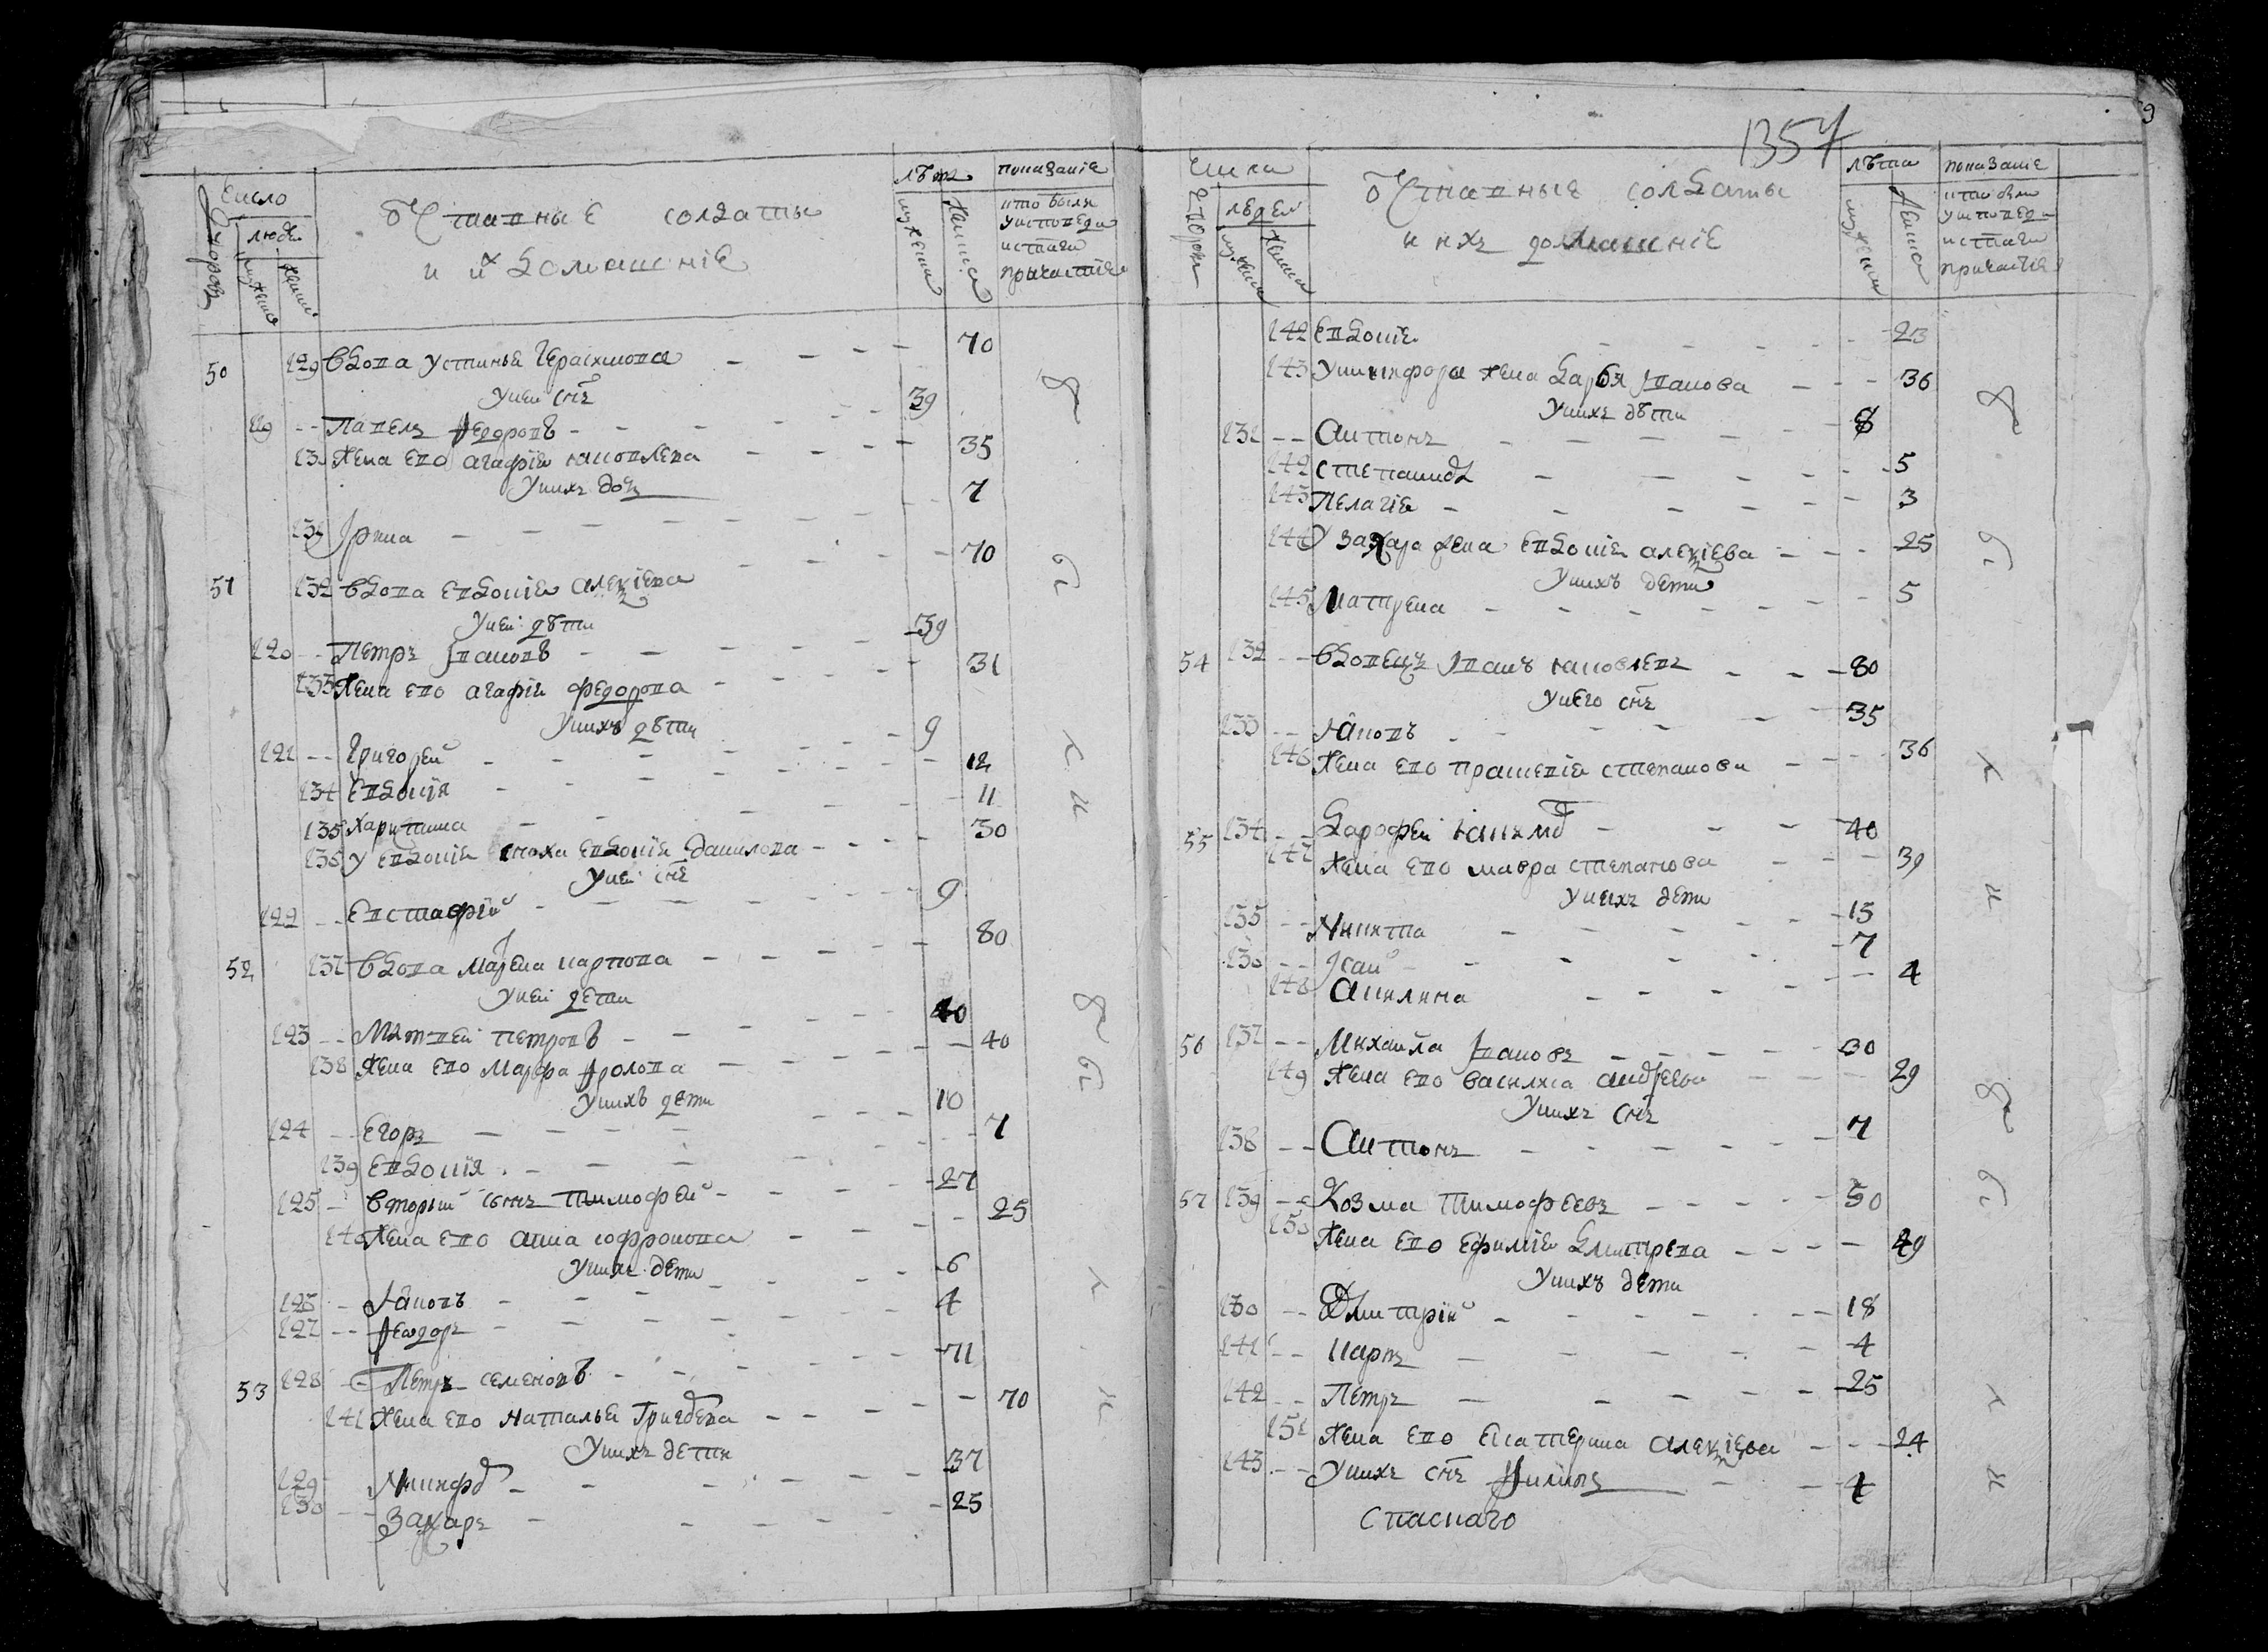 число
людей
дворовъ
мужеска
женска
Отставные солдаты
и их домашнїе
лѣта
мужеска
женска
показанїе
кто были
у исповеди
и с̃таго
причастїя
50 129 вдова устинья герасимова 70
у неи сн̃ъ
119 Павелъ Ѳедоровъ 39
130 Жена ево агафїя яковлева 35
у нихъ дочь
131 Їрина 7
51 132 вдова евдокїя алеѯїева 70
у неи дѣти
120 Петръ Ївановъ 39
133 Жена ево агафїя федорова 31
у нихъ дѣти
121 Григореи 9
134 Евдокїя 12
135 Харитина 11
136 у евдокїи сноха евдокїя данилова 30
у неи сн̃ъ
122 Евстафїи 9
52 137 вдова марена карпова 80
у неи дети
123 Матвеи петровъ 40
138 Жена ево Марфа Ѳролова 40
у нихъ дети
124 Егоръ 10
139 Евдокїя 7
125 вторыи сынъ тимофеи 27
140 Жена ево анна софронова 25
у нихъ дети
126 Яковъ 6
127 Ѳеодоръ 4
53 128 Петръ семеновъ 71
141 Жена ево наталья Григорева 70
у нихъ дети
129 Никифоръ 37
130 Захаръ 25
были
были
1357
9
числа
дворовъ
людеи
мужеска
женска
Отставные солдаты
и ихъ домашнїе
лѣта
мужеска
женска
показанїе
кто были
у исповеди
и с̃таго
причастїя
142 Евдокїя 23
143 у никифора жена дарья Їванова 36
у нихъ дѣти
131 антонъ 8
142 степанида 5
143 Пелагїя 3
144 у захара жена евдокїя алеѯїева 25
у нихъ дети
145 Матрена 5
54 132 вдовецъ Їванъ яковлевъ 80
у него сн̃ъ
133 Яковъ 35
146 Жена ево прасковїя степанова 36
55 134 дорофеи 40
147 Жена ево мавра степанова 39
у нихъ дети
135 Никита 15
136 Їсаи 7
148 акилина 4
56 137 Михаила Ївановъ 30
149 Жена ево василиса андреева 29
у нихъ сн̃ъ
138 Антонъ 7
57 139 Козма тимофеевъ 50
150 Жена ево ефимїя дмитрева 49
у нихъ дети
140 Дмитрїи 18
141 карпъ 4
142 Петръ 25
151 Жена ево екатерина алеѯїева 24
143 у нихъ сн̃ъ Ѳилипъ 4
спаскаго
были
были